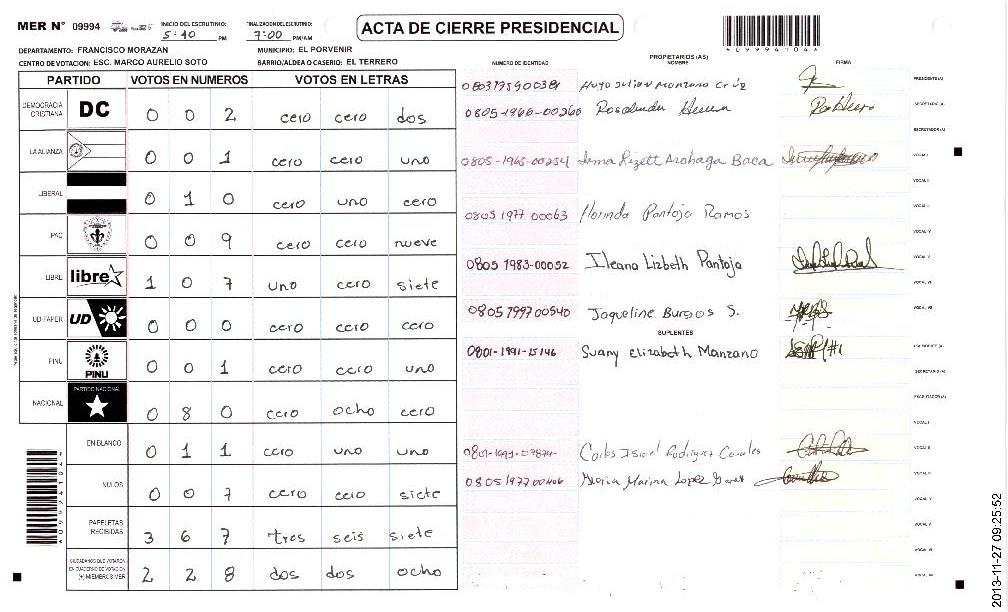 MER N° 09994
INICIO DEL ESCRUTINIO: 5:40 PM
FINALIZACION DEL ESCRUTINIO: 7:00 PM/AM
ACTA DE CIERRE PRESIDENCIAL
DEPARTAMENTO: FRANCISCO MORAZAN
MUNICIPIO: EL PORVENIR
CENTRO DE VOTACION: ESC. MARCO AURELIO SOTO
BARRIO/ALDEA O CASERIO: EL TERRERO
PARTIDO VOTOS EN NUMEROS VOTOS EN LETRAS
DEMOCRACIA CRISTIANA DC 0 0 2 cero cero dos
LA ALIANZA 0 0 1 cero cero uno
LIBERAL 0 1 0 cero uno cero
PAC 0 0 9 cero cero nueve
LIBRE libre 1 0 7 uno cero siete
UD-FAPER UD 0 0 0 cero cero cero
PINU PINU 0 0 1 cero cero uno
NACIONAL PARTIDO NACIONAL 0 8 0 cero ocho cero
EN BLANCO 0 1 1 cero uno uno
NULOS 0 0 7 cero cero siete
PAPELETAS RECIBIDAS 3 6 7 tres seis siete
CIUDADANOS QUE VOTARON EN CUADERNO DE VOTACION (+) MIEMBROS MER 2 2 8 dos dos ocho
NUMERO DE IDENTIDAD
PROPIETARIOS (AS)
NOMBRE
FIRMA
Hugo Julian Manzano Cruz PRESIDENTE(A)
0805-1966-00260 Rosalinda SECRETARIO(A)
ESCRUTADOR(A)
0805-1965-00254 Irma Lizett Baca VOCAL I
VOCAL II
0805 1977 00063 Florinda Pantoja Ramos VOCAL III
VOCAL IV
0805 1983-00052 Ileana Lizbeth Pantoja VOCAL V
VOCAL VI
0805 1997 00540 Jaqueline Burgos S. VOCAL VII
SUPLENTES
0801-1991-15146 Suany Elizabeth Manzano PRESIDENTE(A)
SECRETARIO(A)
ESCRUTADOR(A)
VOCAL I
Carlos Rodriguez VOCAL II
0805 1977 00406 Marina Lopez VOCAL III
VOCAL V
2013-11-27 09:25:52